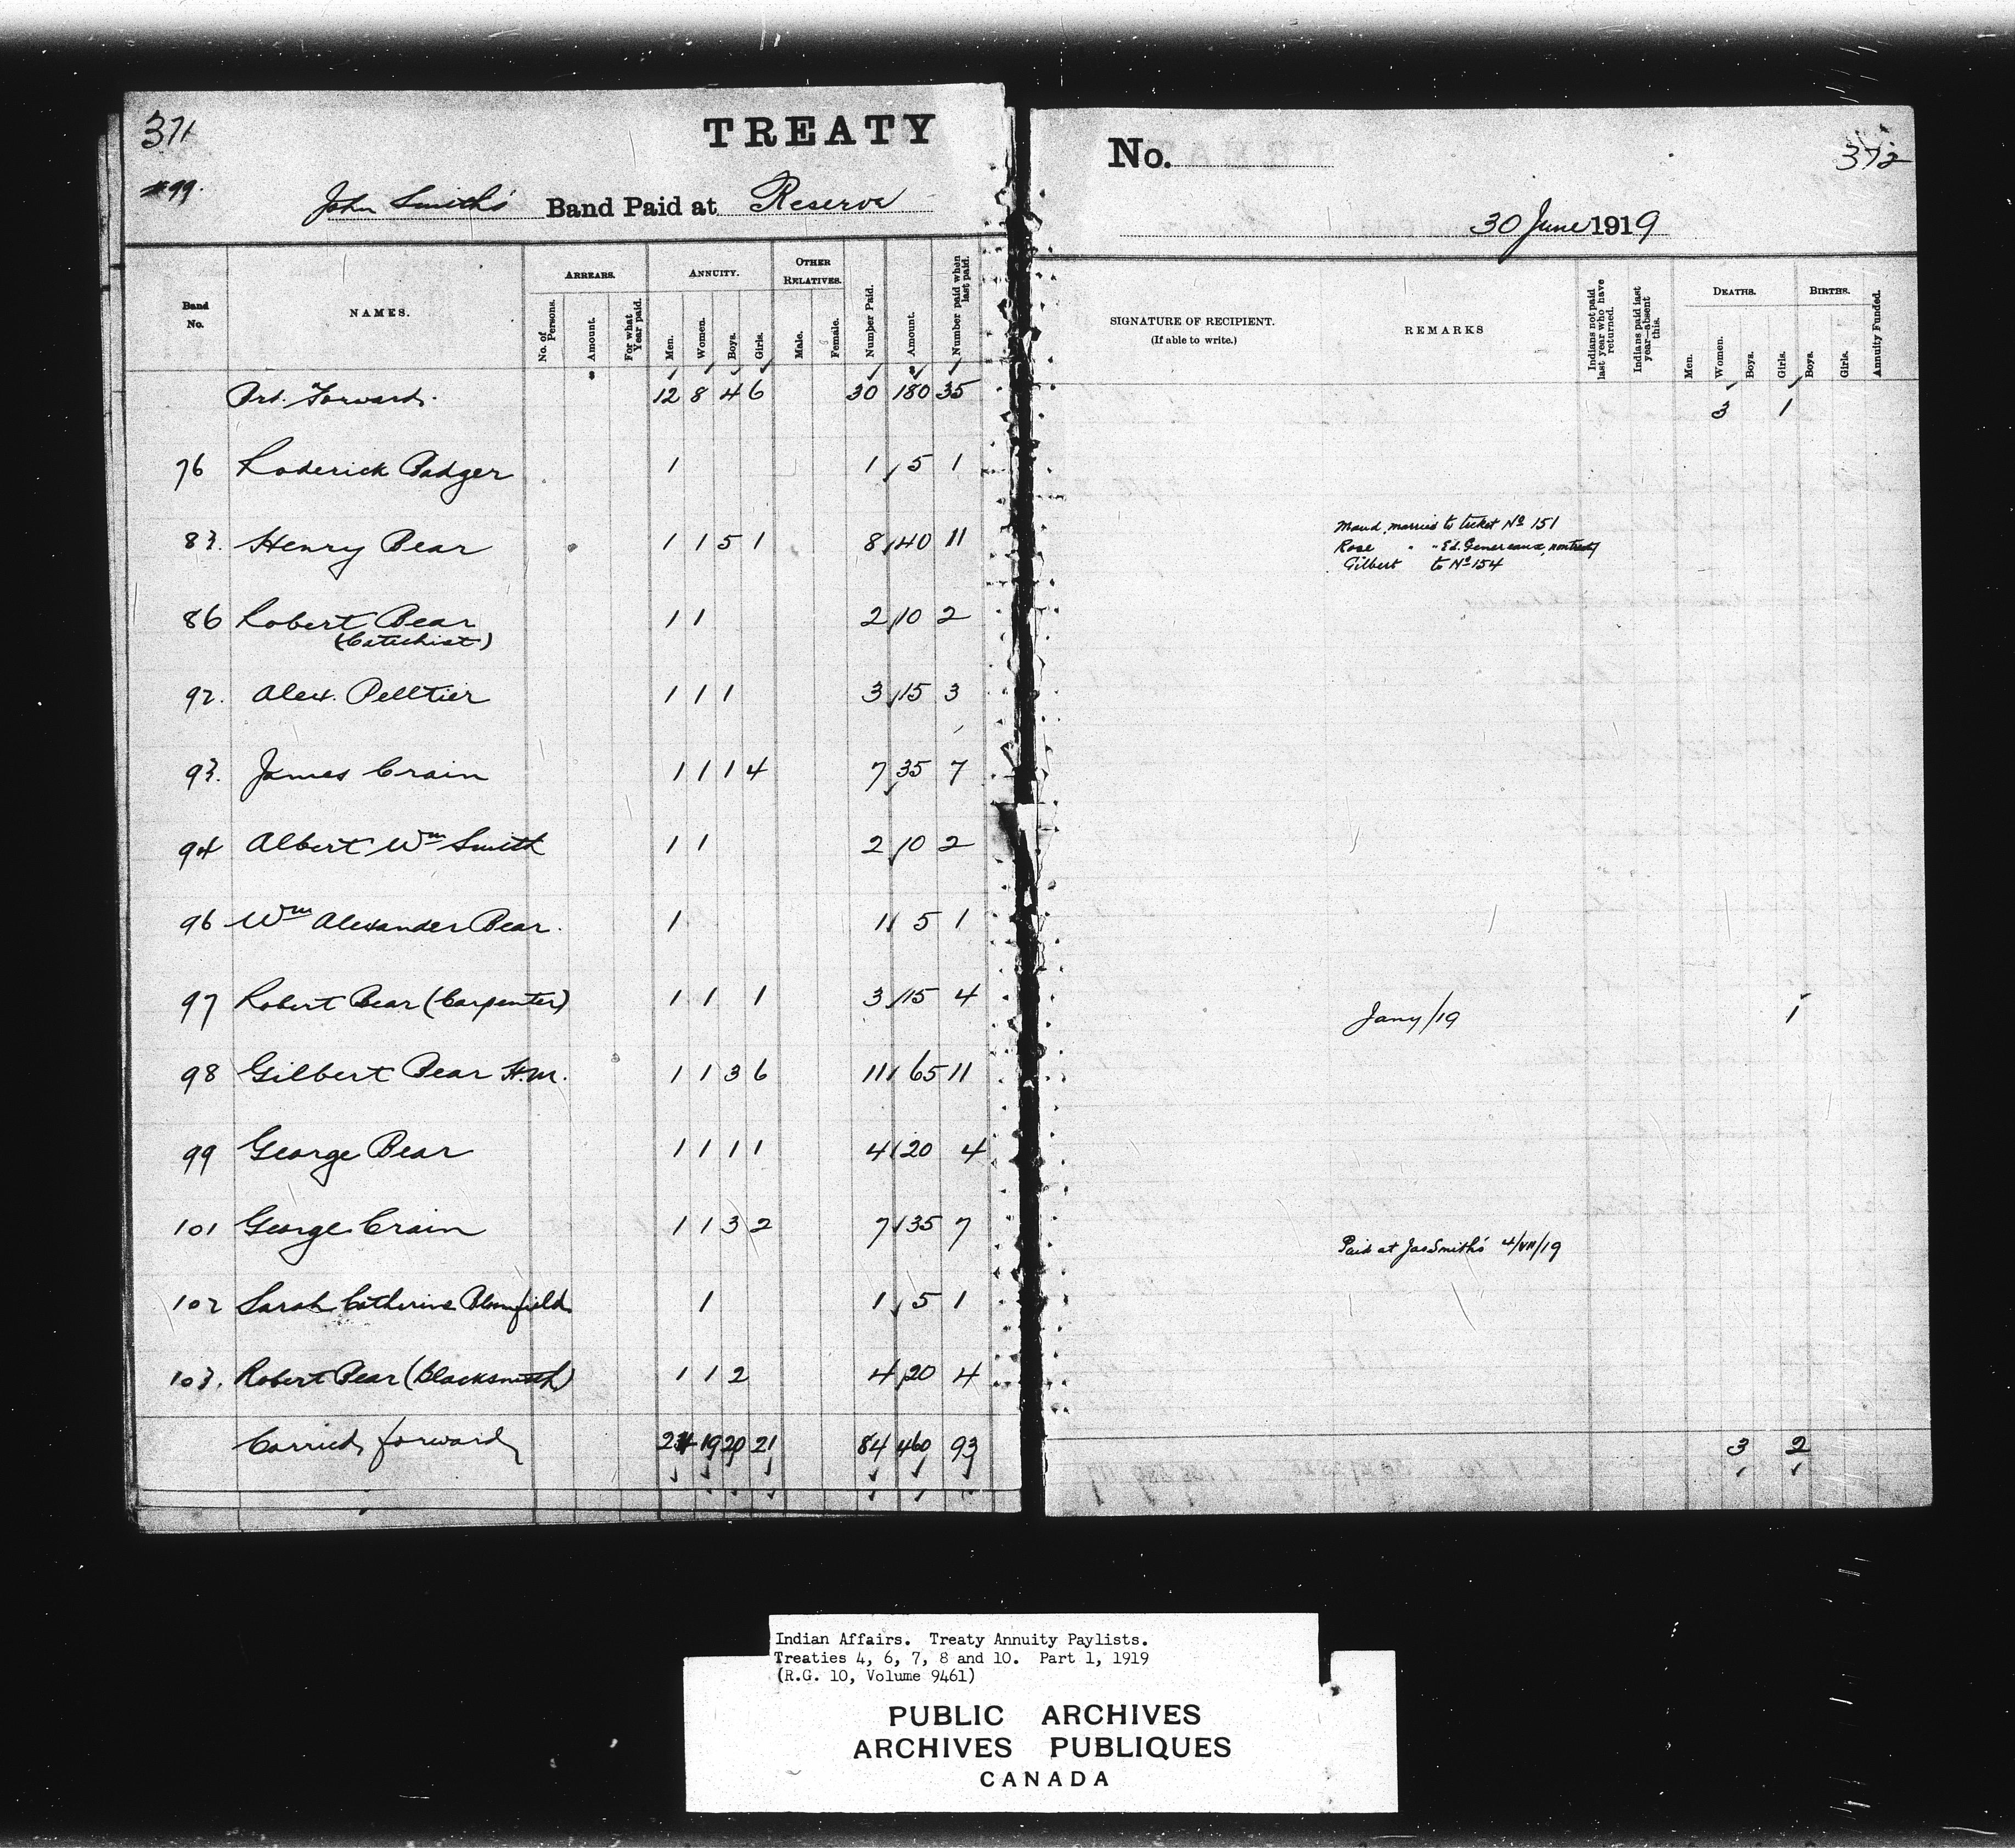 371
TREATY
#99.
John Smith's Band Paid at Reserve
No.
372
30 June 1919
Band No.
NAMES.
ARREARS.
No. of Persons.
Amount.
For what Year paid.
ANNUITY.
Men.
Women.
Boys.
Girls.
OTHER RELATIVES.
Male.
Female.
Number Paid.
Amount.
Number paid when last paid.
SIGNATURE OF RECIPIENT.
(If able to write.)
REMARKS
Indians not paid last year who have returned.
Indians paid last year—absent this.
DEATHS.
Men.
Women.
Boys.
Girls.
BIRTHS.
Boys.
Girls.
Annuity Funded.
Brt. Forward. 12 8 4 6 30 180 35 3 1
76 Roderick Badger 1 1 5 1
83. Henry Bear 1 1 5 1 8 40 11
Maud, married to ticket No 151
Rose " " Ed. Genereaux, nontreaty
Gilbert to No 154
86 Robert Bear 1 1 2 10 2
(Catechist)
92. Alex. Pelltier 1 1 1 3 15 3
93. James Crain 1 1 1 4 7 35 7
94 Albert Wm Smith 1 1 2 10 2
96 Wm Alexander Bear. 1 1 5 1
97 Robert Bear (Carpenter) 1 1 1 3 15 4 Jany/19 1
98 Gilbert Bear H.M. 1 1 3 6 11 65 11
99 George Bear 1 1 1 1 4 20 4
101 George Crain 1 1 3 2 7 35 7 Paid at Jas Smith's 4/VII/19
102 Sarah Catherine Bloomfield 1 1 5 1
103. Robert Bear (Blacksmith) 1 1 2 4 20 4
Carried forward 24 19 20 21 84 460 93 3 2
Indian Affairs. Treaty Annuity Paylists.
Treaties 4, 6, 7, 8 and 10. Part 1, 1919
(R.G. 10, Volume 9461)
PUBLIC ARCHIVES
ARCHIVES PUBLIQUES
CANADA